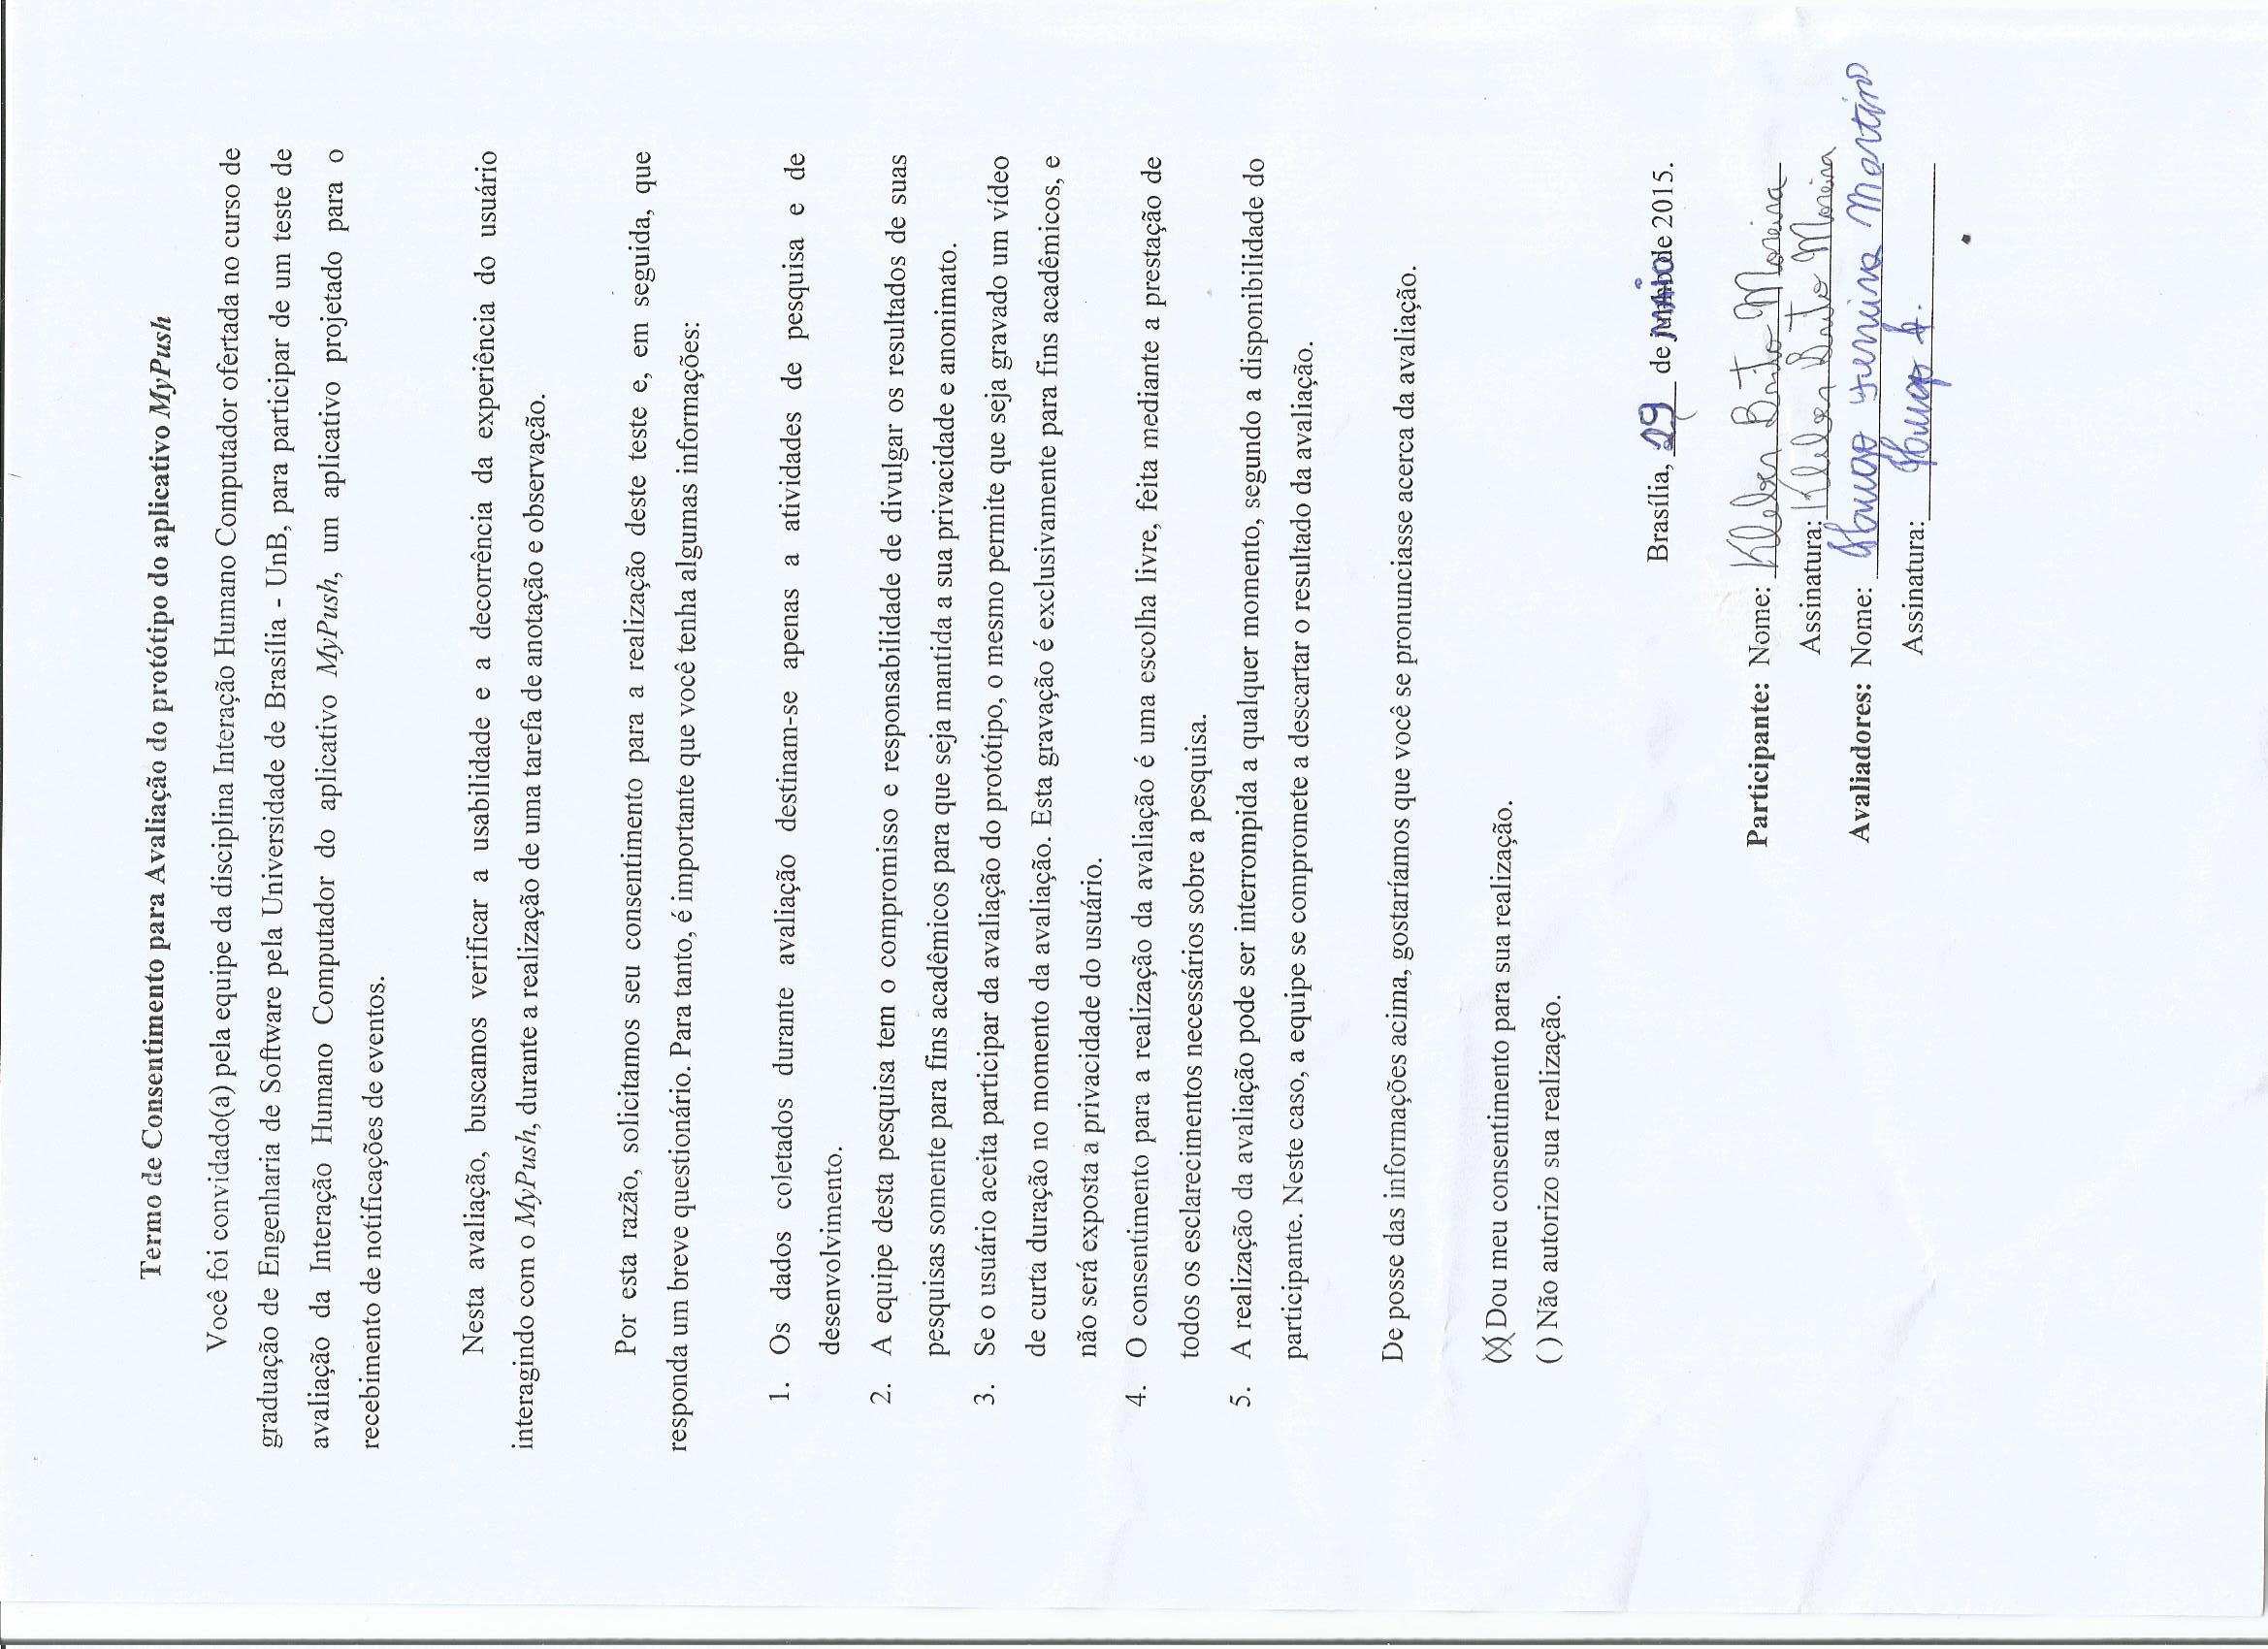 Termo de Consentimento para Avaliação do protótipo do aplicativo MyPush
Você foi convidado(a) pela equipe da disciplina Interação Humano Computador ofertada no curso de
graduação de Engenharia de Software pela Universidade de Brasília - UnB, para participar de um teste de
avaliação da Interação Humano Computador do aplicativo MyPush, um aplicativo projetado para o
recebimento de notificações de eventos.
Nesta avaliação, buscamos verificar a usabilidade e a decorrência da experiência do usuário
interagindo com o MyPush, durante a realização de uma tarefa de anotação e observação.
Por esta razão, solicitamos seu consentimento para a realização deste teste e, em seguida, que
responda um breve questionário. Para tanto, é importante que você tenha algumas informações:
1. Os dados coletados durante avaliação destinam-se apenas a atividades de pesquisa e de
desenvolvimento.
2. A equipe desta pesquisa tem o compromisso e responsabilidade de divulgar os resultados de suas
pesquisas somente para fins acadêmicos para que seja mantida a sua privacidade e anonimato.
3. Se o usuário aceita participar da avaliação do protótipo, o mesmo permite que seja gravado um vídeo
de curta duração no momento da avaliação. Esta gravação é exclusivamente para fins acadêmicos, e
não será exposta a privacidade do usuário.
4. O consentimento para a realização da avaliação é uma escolha livre, feita mediante a prestação de
todos os esclarecimentos necessários sobre a pesquisa.
5. A realização da avaliação pode ser interrompida a qualquer momento, segundo a disponibilidade do
participante. Neste caso, a equipe se compromete a descartar o resultado da avaliação.
De posse das informações acima, gostaríamos que você se pronunciasse acerca da avaliação.
(X) Dou meu consentimento para sua realização.
( ) Não autorizo sua realização.
Brasília, 29 de maio de 2015.
Participante: Nome: Kleber Brito Moreira
Assinatura: Kleber Brito Moreira
Avaliadores: Nome: Martins
Assinatura: